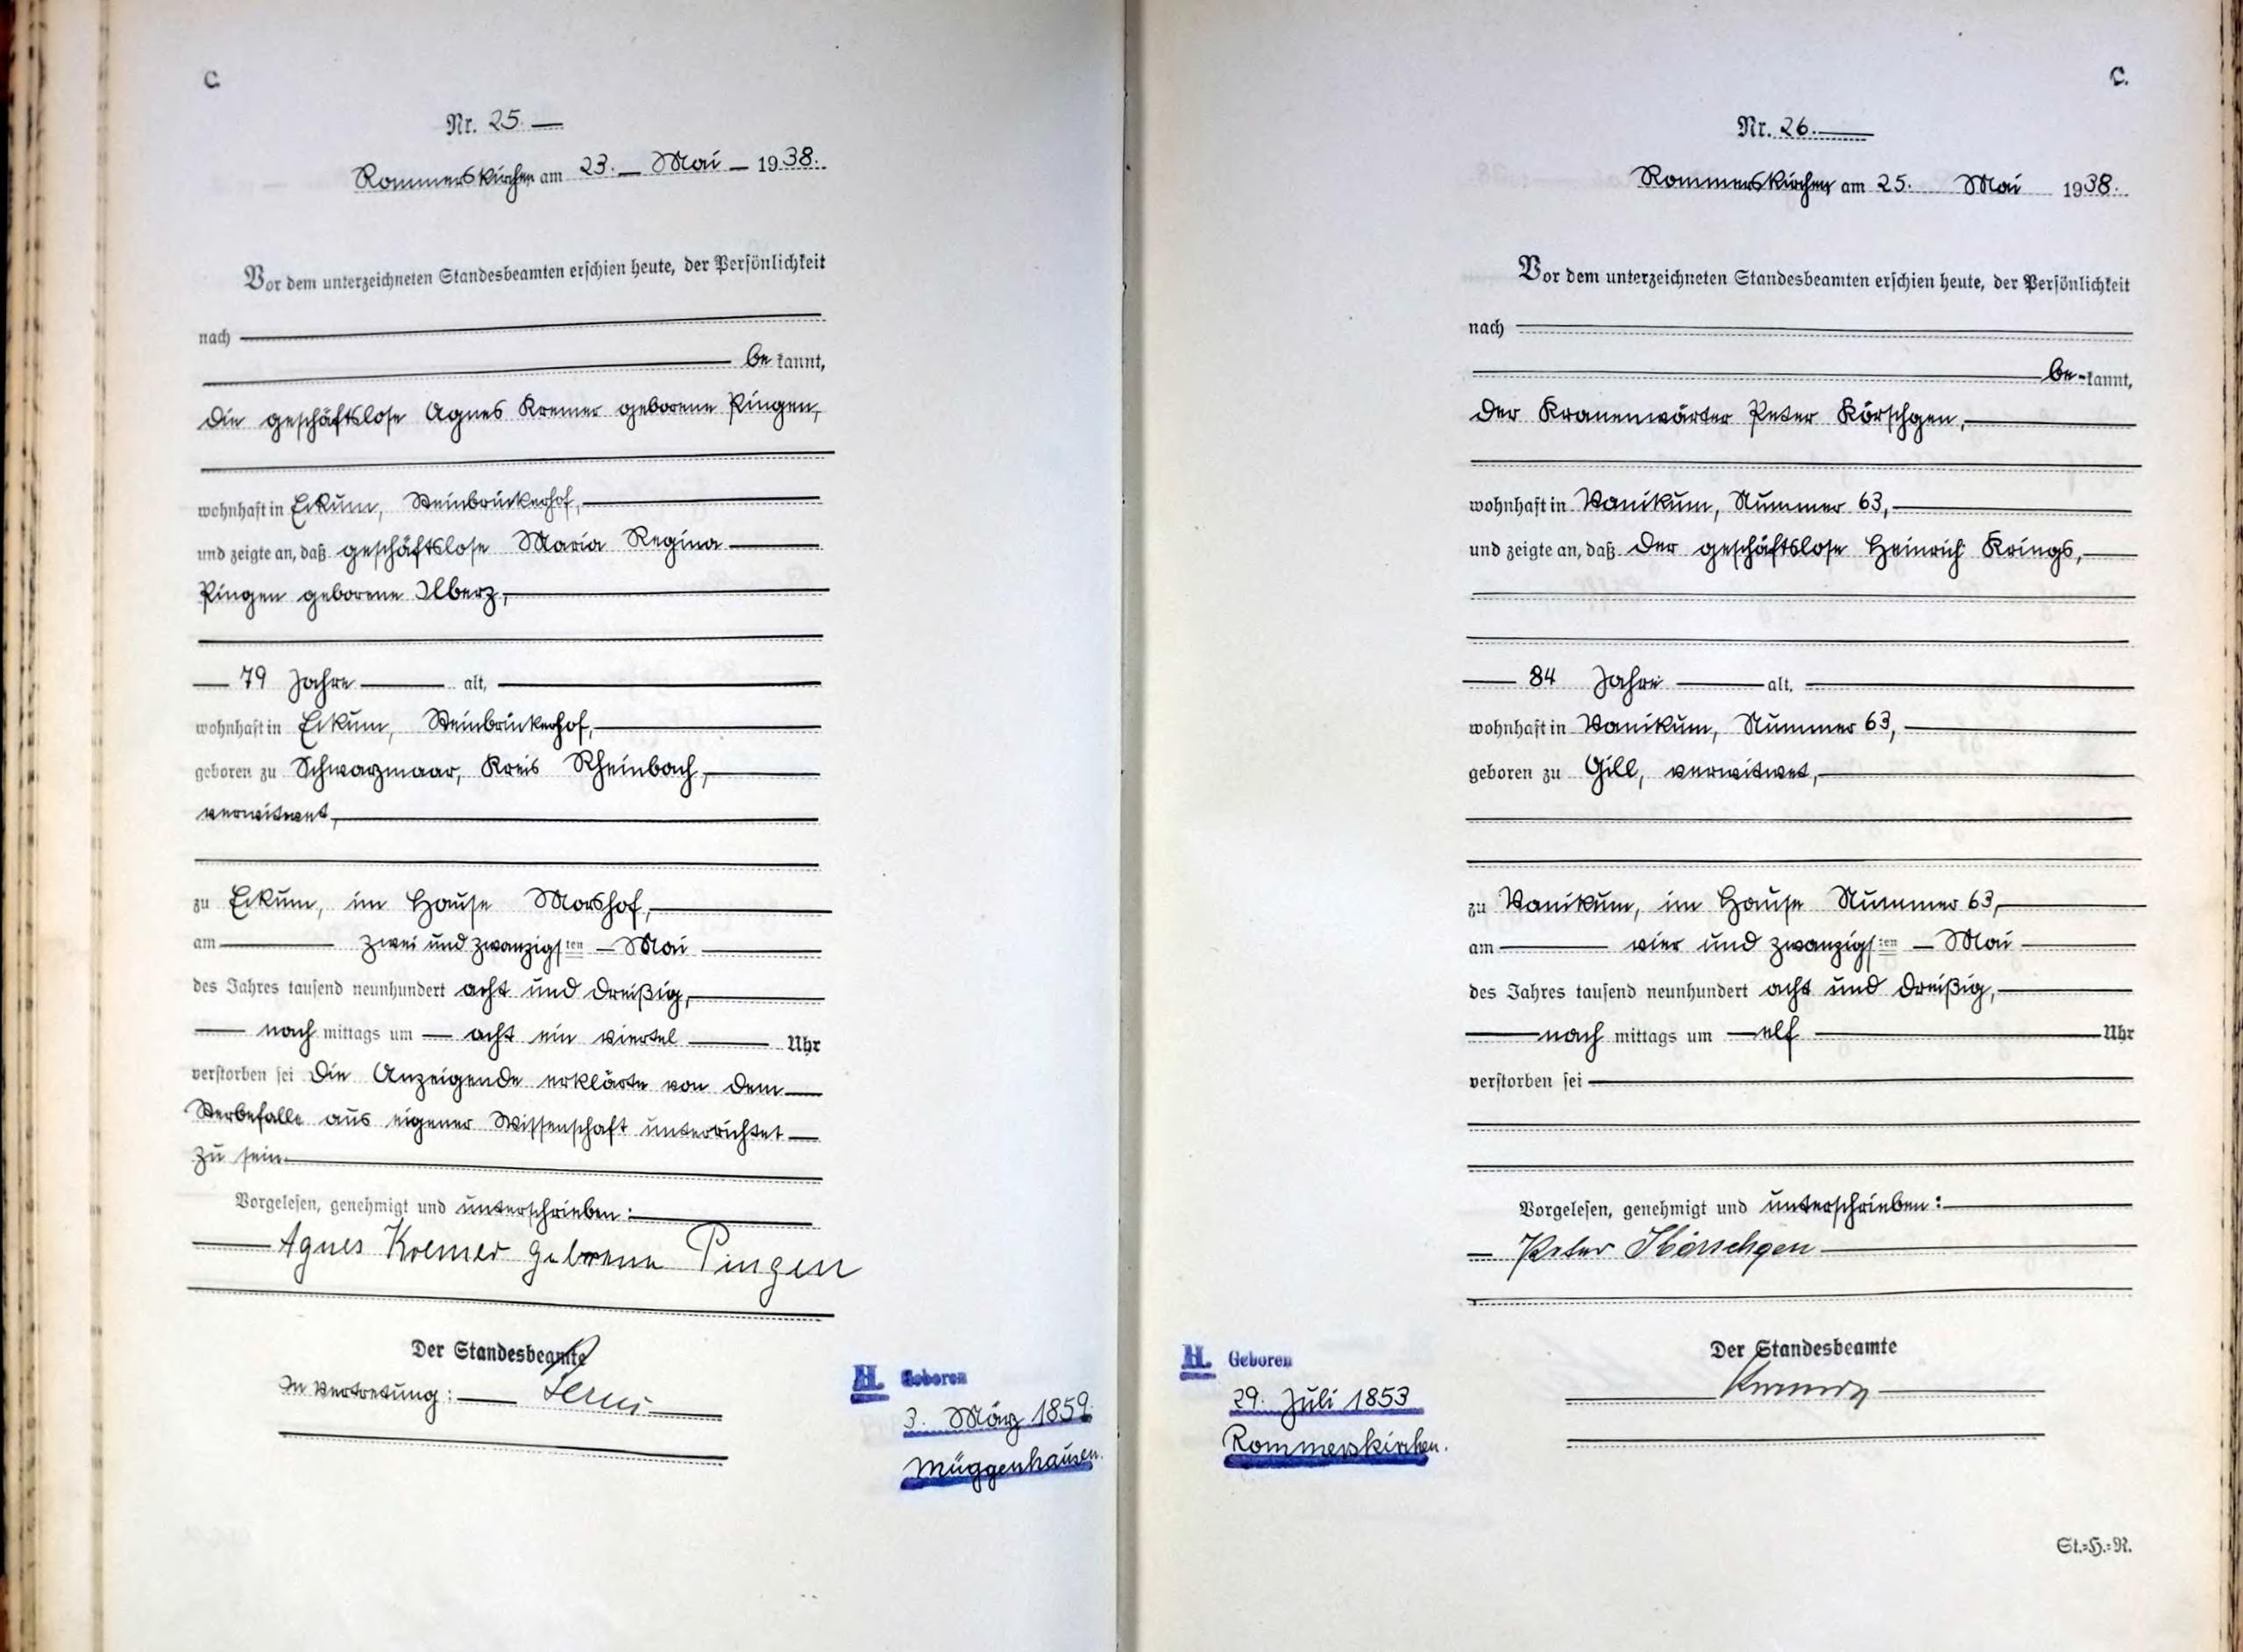 C.
Nr. 25.
Rommerskirchen am 23. Mai 1938.
Vor dem unterzeichneten Standesbeamten erschien heute, der Persönlichkeit
nach
be kannt,
die geschäftslose Agnes Kremer geborene Pingen,
wohnhaft in Eckum, Steinbrückerhof,
und zeigte an, daß geschäftslose Maria Regina
Pingen geborene Ilberz,
79 Jahre alt,
wohnhaft in Eckum, Steinbrückerhof,
geboren zu Schwarzmaar, Kreis Rheinbach,
verwitwet,
zu Eckum, im Hause Morshof,
am zwei und zwanzigsten Mai
des Jahres tausend neunhundert acht und dreißig,
nach mittags um acht ein viertel Uhr
verstorben sei Die Anzeigende erklärte von dem
Sterbefalle aus eigener Wissenschaft unterrichtet
zu sein.
Vorgelesen, genehmigt und unterschrieben:
Agnes Kremer geborene Pingen
Der Standesbeamte
In Vertretung:
H. Geboren
3. März 1859.
Müggenhausen.
C.
Nr. 26.
Rommerskirchen am 25. Mai 1938.
Vor dem unterzeichneten Standesbeamten erschien heute, der Persönlichkeit
nach
be-kannt,
der Kranenwärter Peter Körschgen,
wohnhaft in Vanikum, Nummer 63,
und zeigte an, daß der geschäftslose Heinrich Krings,
84 Jahre alt,
wohnhaft in Vanikum, Nummer 63,
geboren zu Gill, verwitwet,
zu Vanikum, im Hause Nummer 63,
am vier und zwanzigsten Mai
des Jahres tausend neunhundert acht und dreißig,
nach mittags um elf Uhr
verstorben sei
Vorgelesen, genehmigt und unterschrieben:
Peter Körschgen
Der Standesbeamte
H. Geboren
29. Juli 1853
Rommerskirchen.
St.=H.=R.